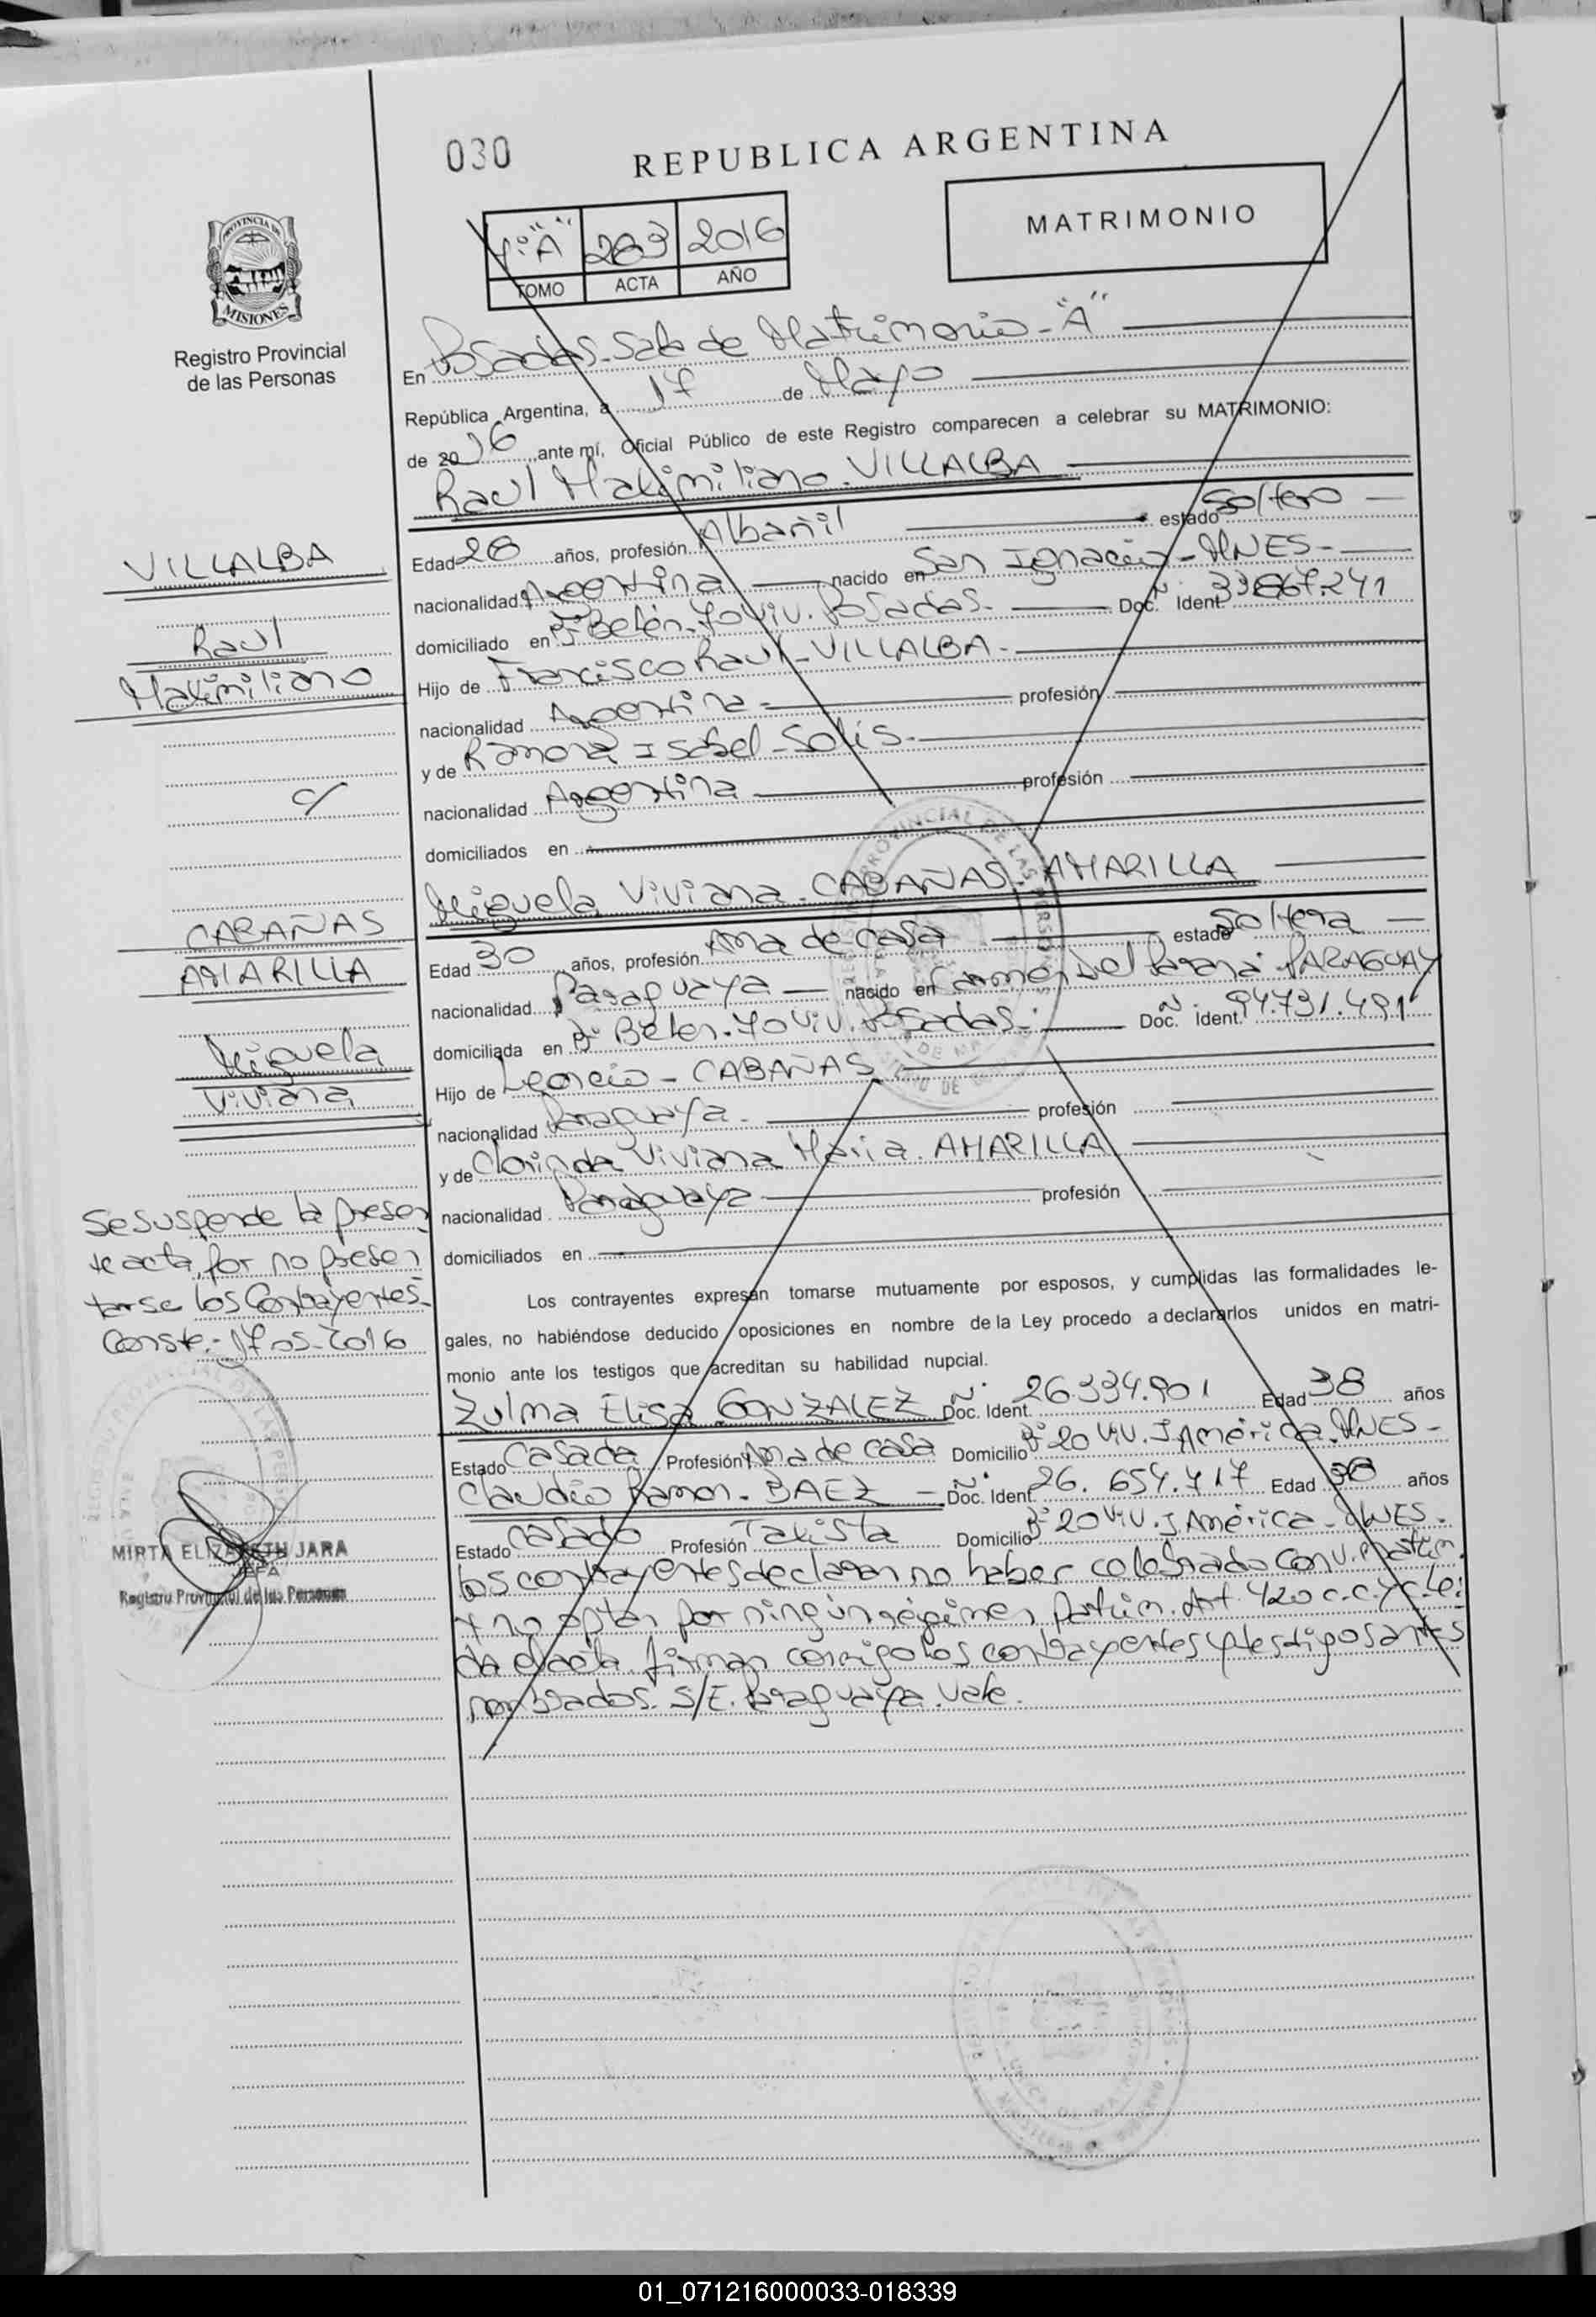 030
REPUBLICA ARGENTINA
MATRIMONIO
1º "A" 263 2016
TOMO ACTA AÑO
PROVINCIA DE
MISIONES
Registro Provincial
de las Personas
En Posadas-Sala de Matrimonio-"A"
República Argentina, a 17 de Mayo
de 2016 ante mí, Oficial Público de este Registro comparecen a celebrar su MATRIMONIO:
Raul Maximiliano-VILLALBA
Edad 28 años, profesión Albañil estado Soltero
nacionalidad Argentina nacido en San Ignacio-MNES-
domiciliado en Bº Belén-70 Viv. Posadas- Doc. Ident
Hijo de Francisco Raul-VILLALBA-
nacionalidad Argentina- profesión
y de Ramona Isabel-Solis-
nacionalidad Argentina profesión
domiciliados en
Miguela Viviana-CABAÑAS AMARILLA
Edad 30 años, profesión Ama de casa estado Soltera
nacionalidad Paraguaya nacido en Carmen Del Paraná-PARAGUAY
domiciliada en Bº Belen-70 Viv. Posadas- Doc. Ident. 94.731.491
Hijo de Leoncio-CABAÑAS
nacionalidad Paraguaya- profesión
y de Clorinda Viviana Maria-AMARILLA
nacionalidad Paraguaya profesión
domiciliados en
Los contrayentes expresan tomarse mutuamente por esposos, y cumplidas las formalidades le-
gales, no habiéndose deducido oposiciones en nombre de la Ley procedo a declararlos unidos en matri-
monio ante los testigos que acreditan su habilidad nupcial.
Zulma Elisa GONZALEZ Doc. Ident. 26.334.901 Edad 38 años
Estado Casada Profesión Ama de casa Domicilio Bº 20 Viv. I. América-MNES-
Claudio Ramon-BAEZ- Doc. Ident. 26.654.717 Edad 38 años
Estado Casado Profesión Taxista Domicilio Bº 20 Viv. I. América-MNES-
los contrayentes declaran no haber celebrado Conv. Matrim.
y no optan por ningún régimen Patrim. Art. 420 c.c.y c. Lei
da el acta firman conmigo los contrayentes y testigos antes
nombrados. S/E. Paraguaya. Vale.
VILLALBA
Raul
Maximiliano
c/
CABAÑAS
AMARILLA
Miguela
Viviana
Se suspende la presen
te acta, por no presen
tarse los Contrayentes-
Conste.- 17-05-2016
MIRTA ELIZABETH JARA
JEFA
Registro Provincial de las Personas
01_071216000033-018339